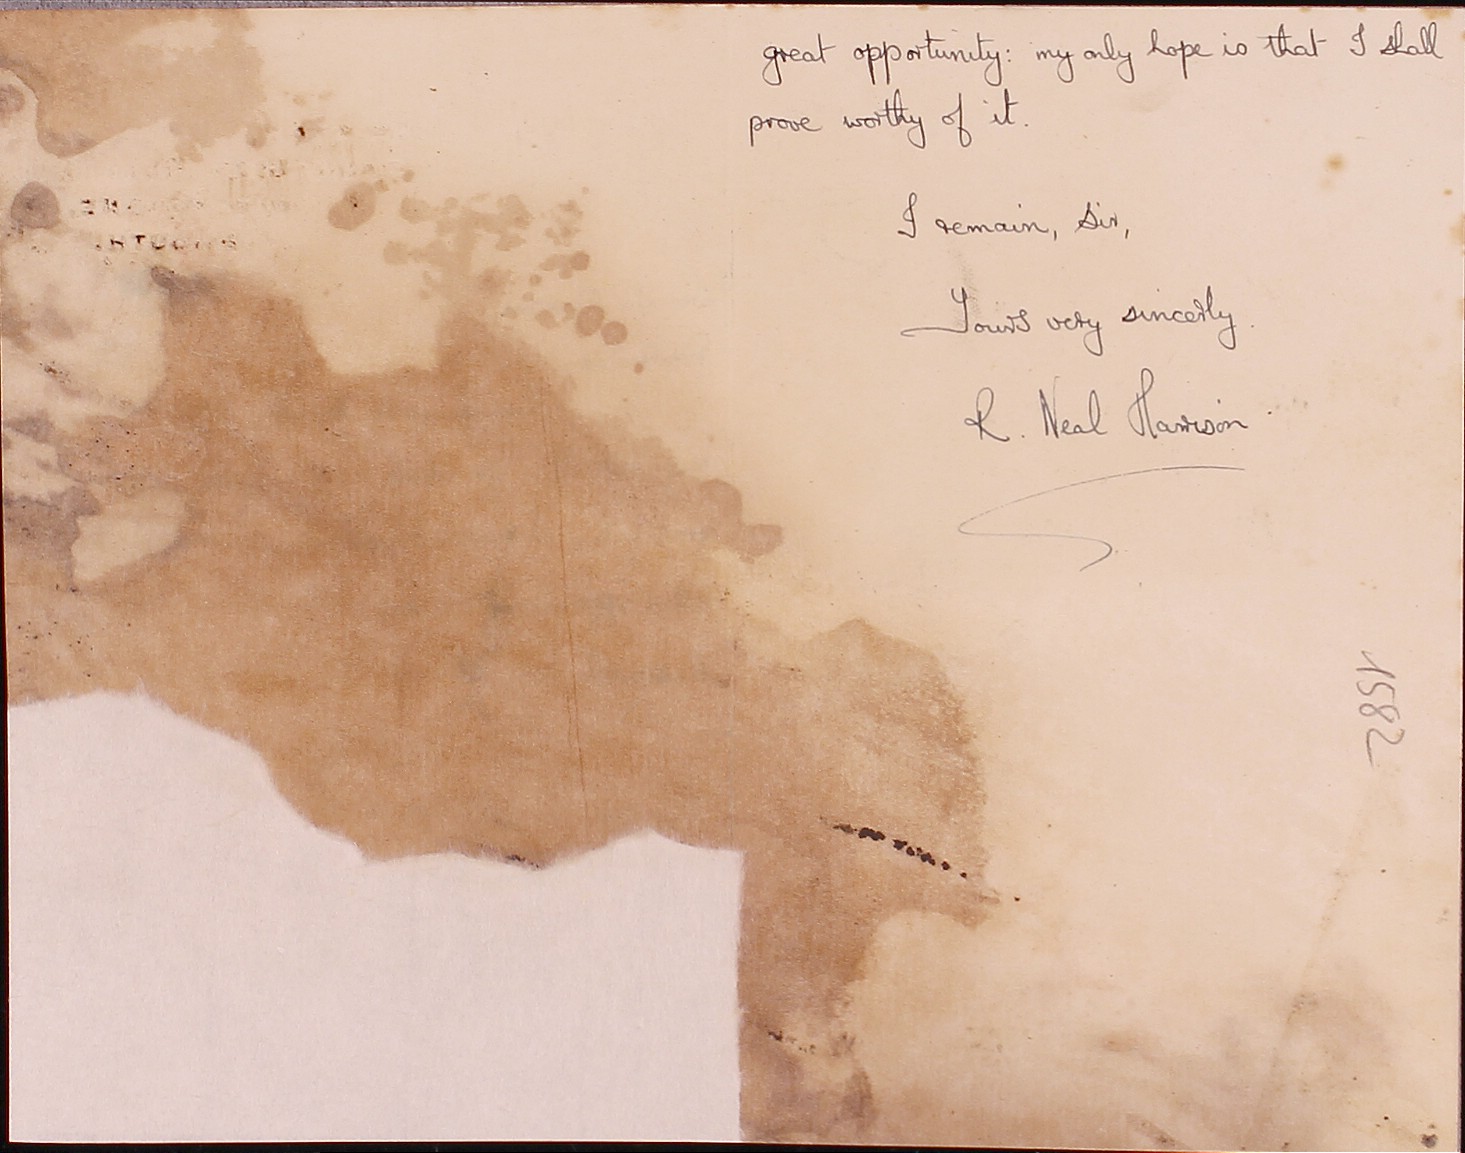 great opportunity: my only hope is that I shall
prove worthy of it.
I remain, Sir,
Yours very sincerly.
R. Neal Harrison
1582